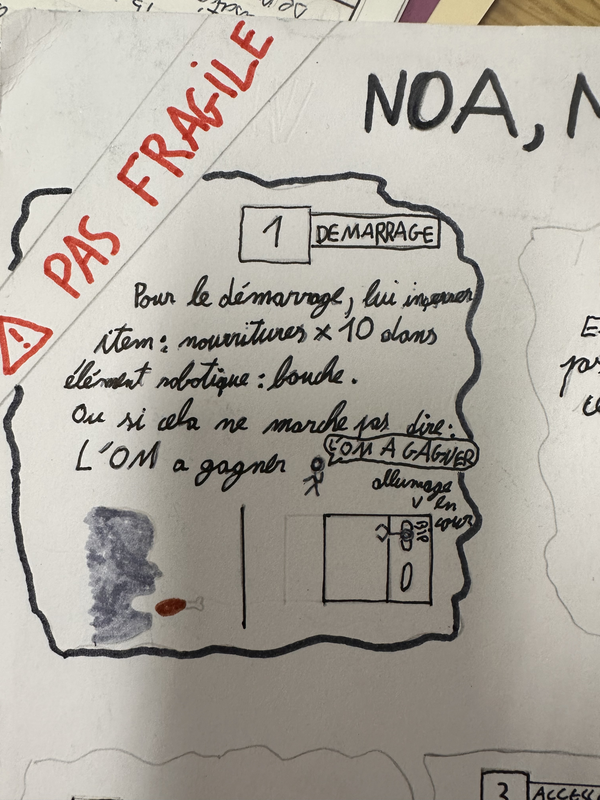 PAS FRAGILE
NOA, N
1 DEMARRAGE
Pour le démarrage, lui
item : nourritures x 10 dans
élément robotique : bouche.
Ou si cela ne marche pas dire :
L'OM a gagner
L'OM A GAGNER
allumage
en
cour
BIP
E
pas
ce
2 ACCESS